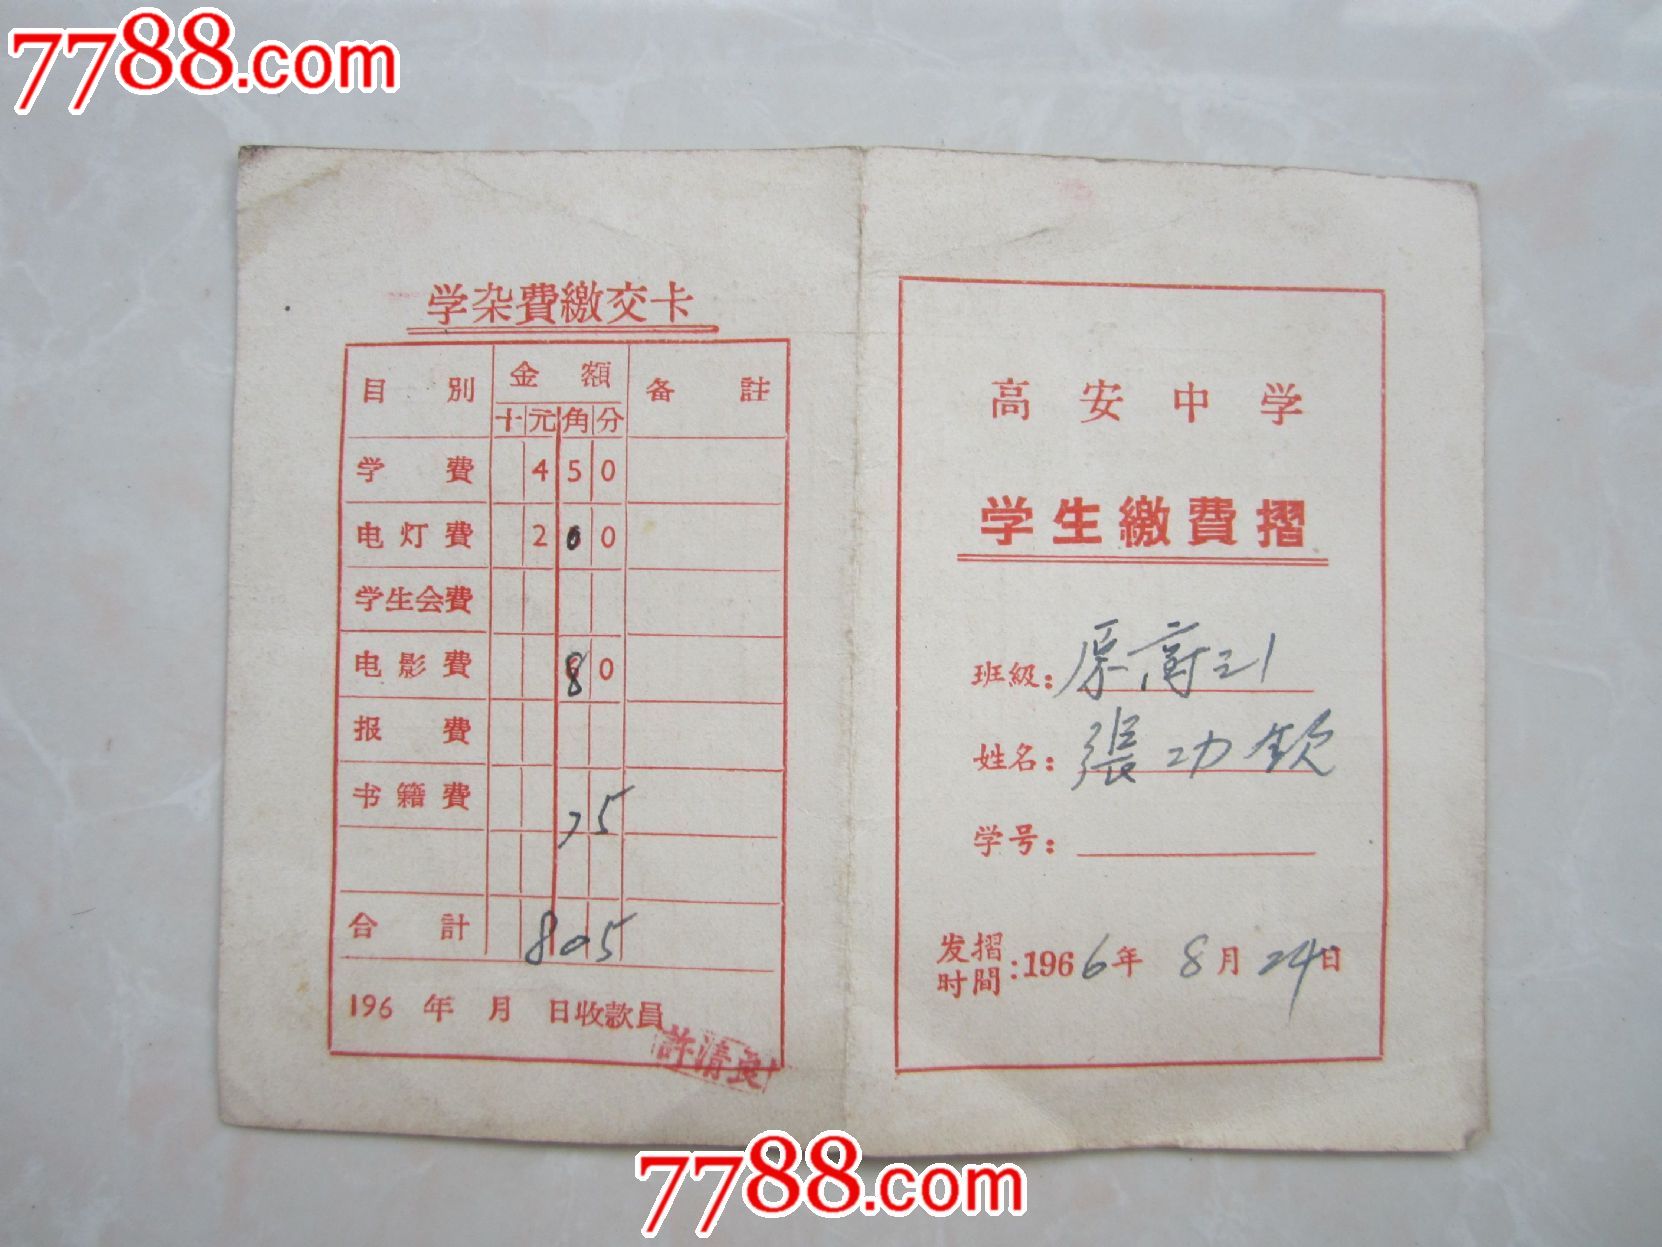 7788.com
学杂費繳交卡
目別 金額 备註
十 元 角 分
学費 4 5 0
电灯費 2 0 0
学生会費
电影費 8 0
报費
书籍費 7 5
合計 8 0 5
196 年 月 日收款員
許清良
高安中学
学生繳費摺
班級：原高三1
姓名：張功欽
学号：
发摺时間：1966年 8月 24日
7788.com